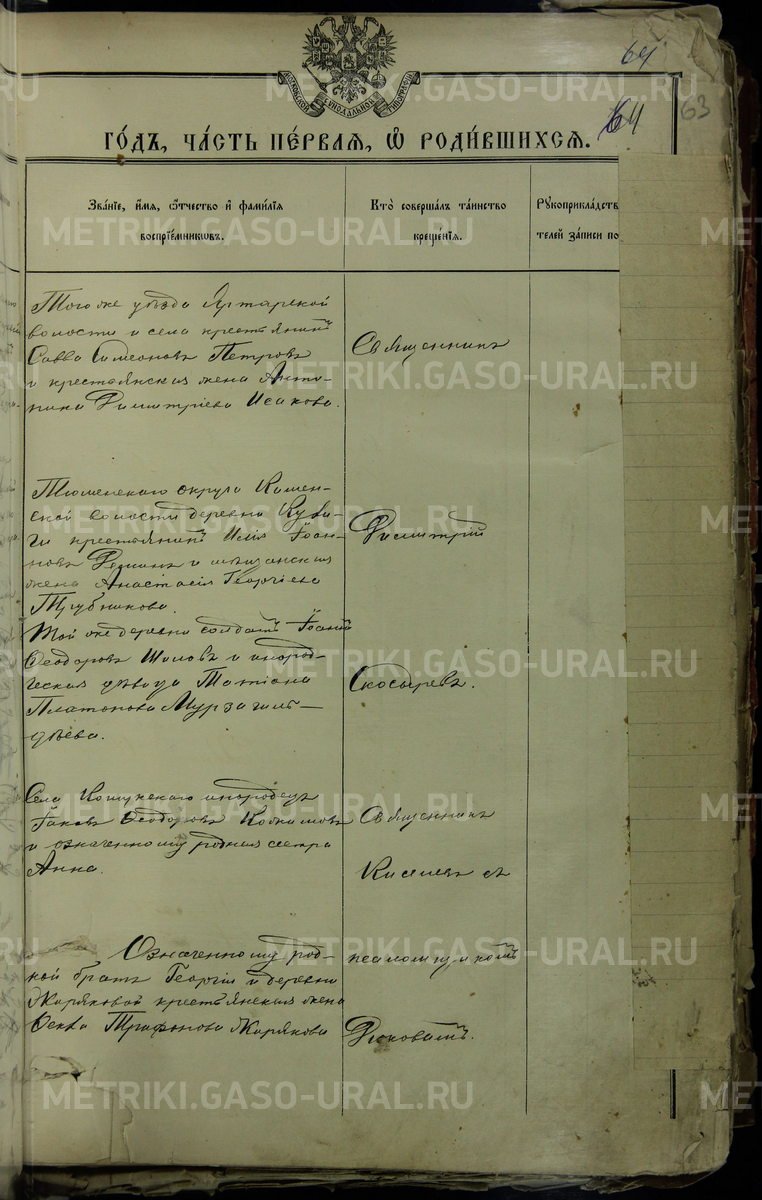 64
64
63
МОСКОВСКОЙ СѴНОДАЛЬНОЙ ТИПОГРАФІИ
ГО́ДЪ, ЧА́СТЬ ПЕ́РВАЯ, Ѽ РОДИ́ВШИХСЯ.
Зва́нїе, и҆́мя, ѻ҆́тчество и҆ фами́лїя
воспрїе́мникѡвъ.
Кто̀ соверша́лъ та́инство
креще́нїя.
Рꙋкоприкла́дств
телей за́писи по
Того же уѣзда
волости и села крестьянинъ
Савва Симеоновъ Петровъ
и крестьянская жена Анто-
нина Димитріева Исакова.
Священникъ
Тюменскаго округа Камен-
ской волости деревни
ги крестьянинъ Илія Іоан-
новъ и мѣщанская
жена Анастасія Георгіева
Трубникова.
Димитрій
Той же деревни солдатъ Іоаннъ
Ѳеодоровъ Шиловъ и инород-
ческая дѣвица Татіана
Платонова Мурзагиль-
дѣева.
Скосыревъ.
Села Кошукскаго инородецъ
Іаковъ Ѳеодоровъ
и означенному родная сестра
Анна.
Священникъ
Киселевъ съ
Означенному род-
ной братъ Георгій и деревни
Жиряковой крестьянская жена
Ѳекла Трифонова Жирякова
псаломщикомъ
METRIKI.GASO-URAL.RU